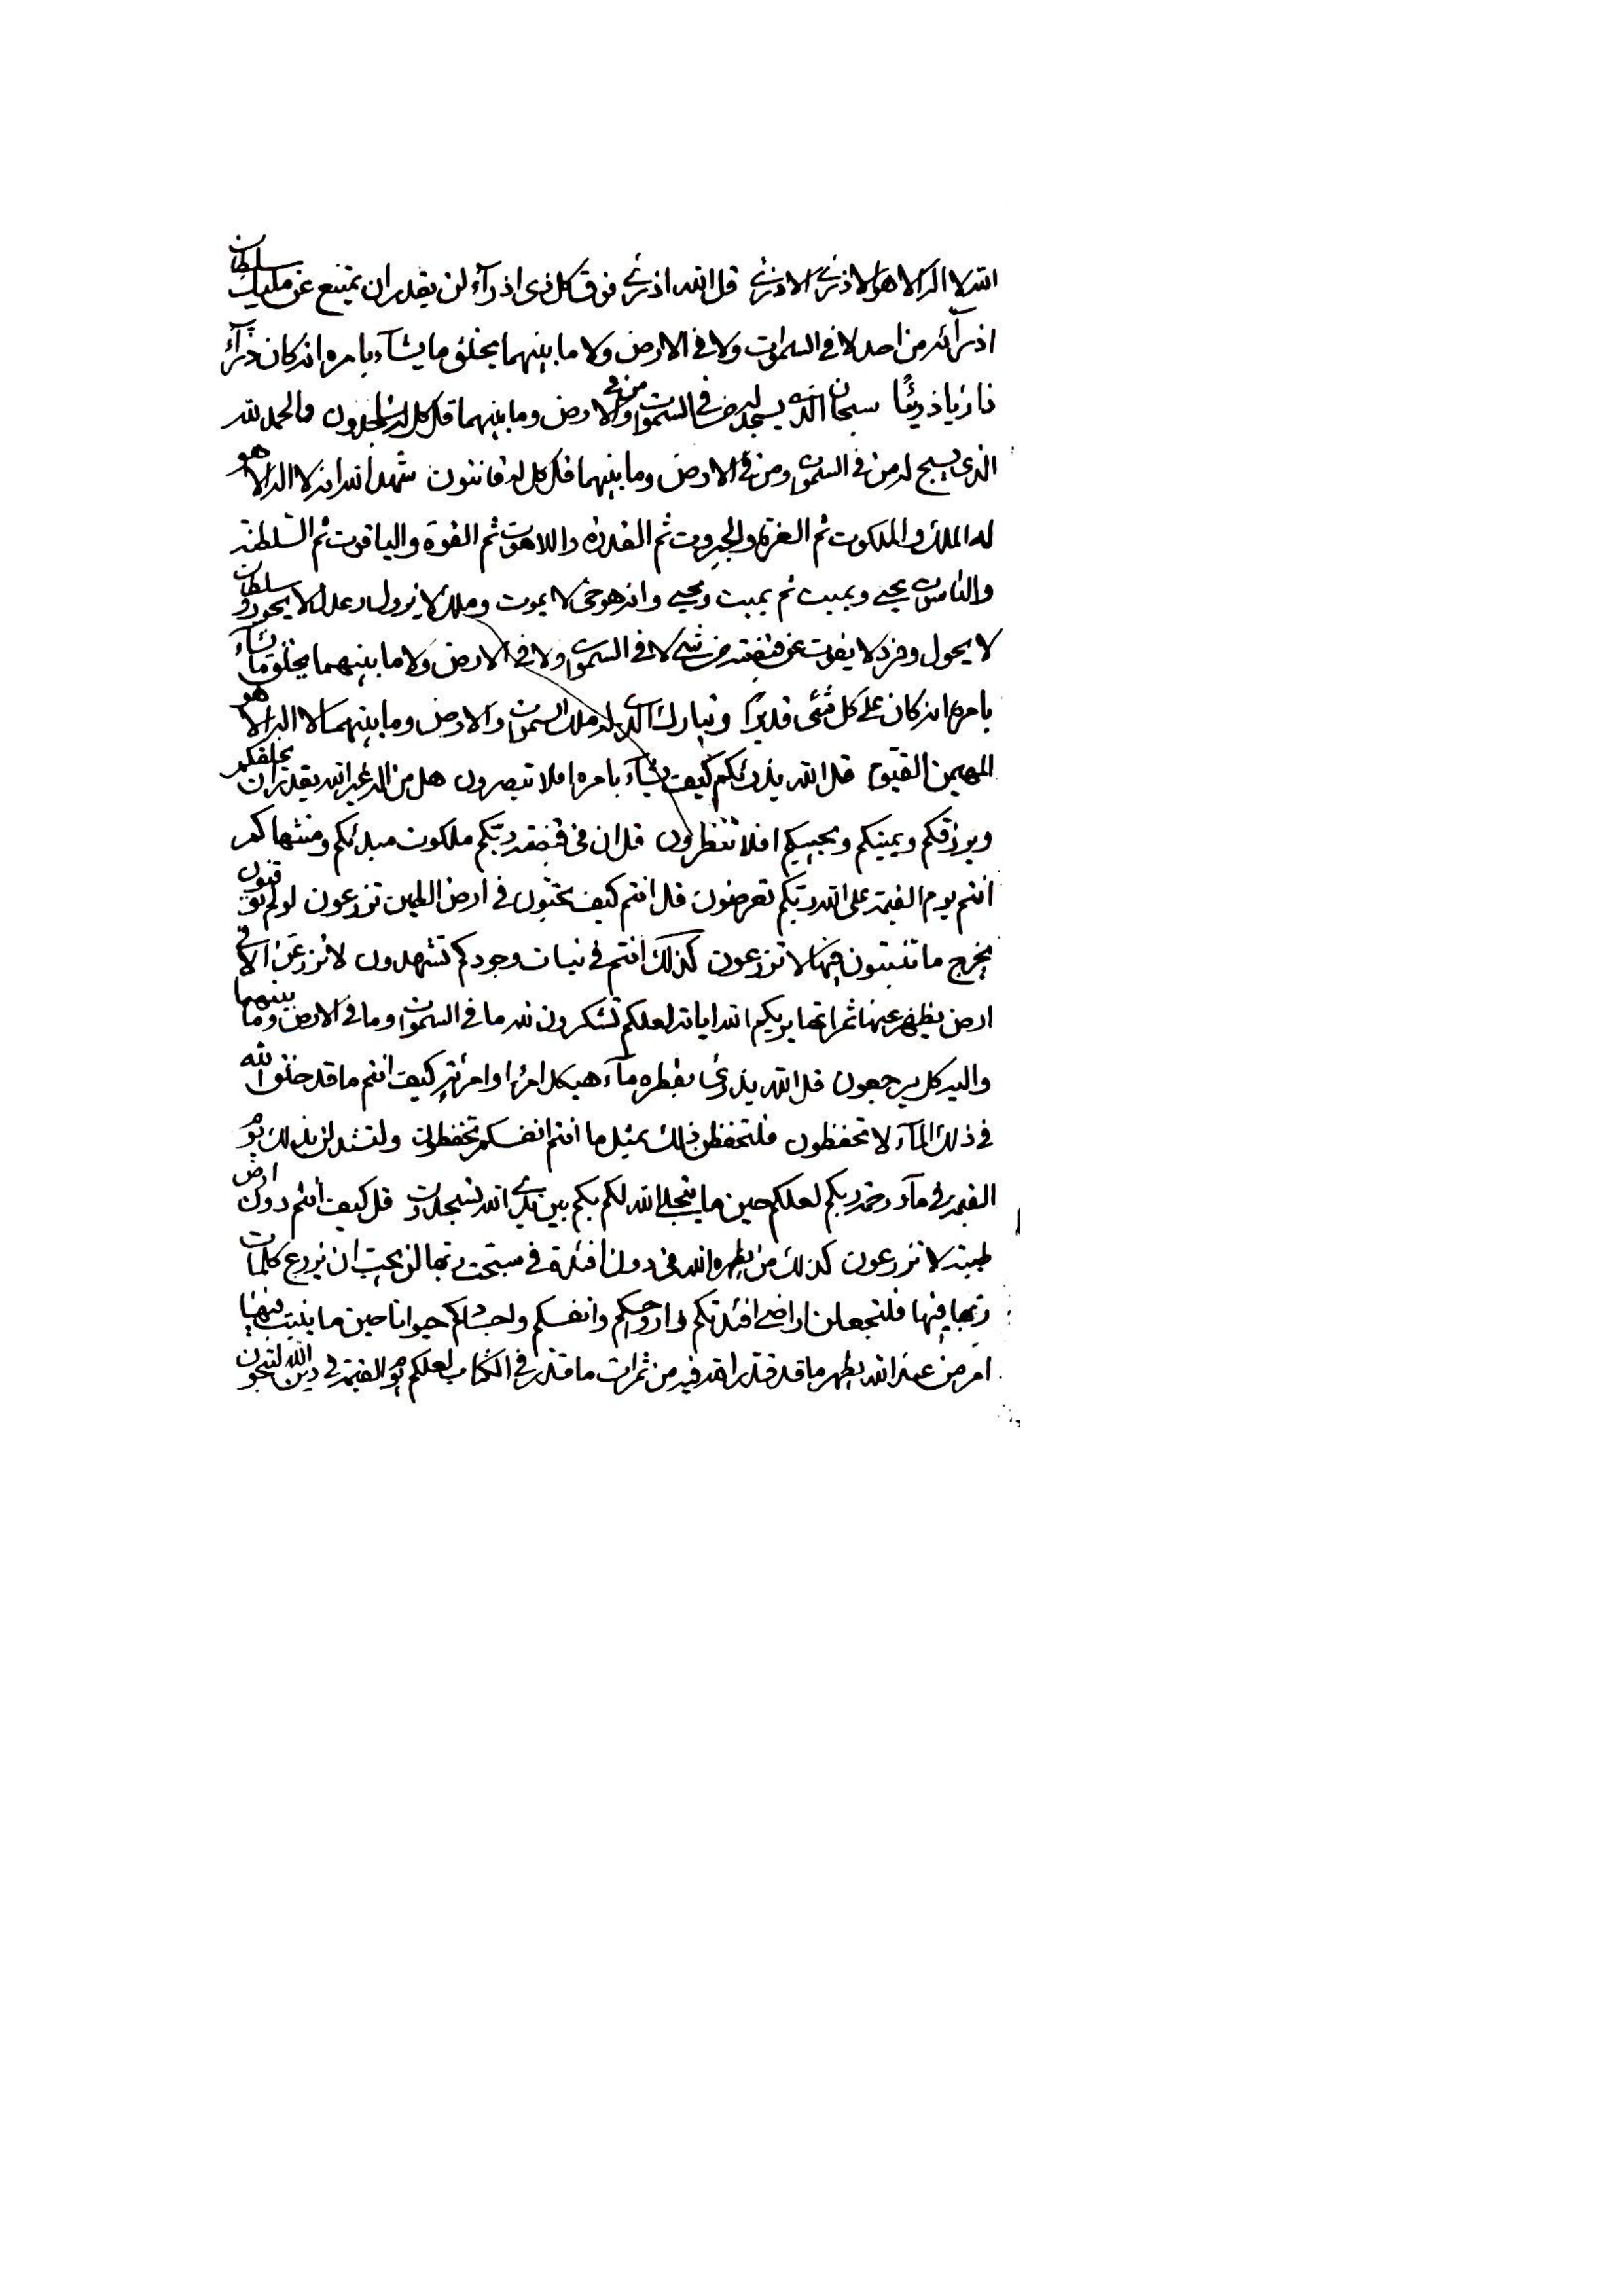 الله لا اله الا هو الاذرئ الاذرئ قل الله اذرئ فوق كل ذى اذرآء لن يقدر ان يمتنع عن مليك سلطان
اذرآئه من احد لا في السموات ولا في الارض ولا ما بينهما يخلق ما يشآء بامره انه كان ذرآء
ذارئا ذريئا سبحان الذي يسجد له من في السموات ومن في الارض وما بينهما قل كل له ساجدون والحمد لله
الذي يسبح له من في السموات ومن في الارض وما بينهما قل كل له قانتون شهد الله انه لا اله الا هو
له الملك والملكوت ثم العزة والجبروت ثم القدرة واللاهوت ثم القوة والياقوت ثم السلطنة
والناسوت يحيي ويميت ثم يميت ويحيي وانه هو حي لا يموت وملك لا يزول وعدل لا يجور وسلطان
لا يحول وفرد لا يفوت عن قبضته من شئ لا في السموات ولا في الارض ولا ما بينهما يخلق ما يشآء
بامره انه كان على كل شئ قديرا وتبارك الذي له ملك السموات والارض وما بينهما لا اله الا هو
المهيمن القيوم قل الله يذرئكم كيف يشآء بامره افلا تبصرون هل من اله غير الله يقدر ان يخلقكم
ويرزقكم ويميتكم ويحييكم افلا تنظرون قل ان في قبضة ربكم ملكوت مبدئكم ومنتهاكم
انتم يوم القيمة على الله ربكم تعرضون قل انتم كيف تحبون في ارض الطين تزرعون لو لم توقنون
يخرج ما تنبتون فيها لا تزرعون كذلك انتم في نبات وجودكم تشهدون لا تزرعن الا في
ارض يظهر عنها ثمراتها يريكم الله اياته لعلكم تشكرون لله ما في السموات وما في الارض وما بينهما
واليه كل يرجعون قل الله يذرئ بقطرة مآء هيكل امرء او امرئة كيف انتم ما قد خلق الله
في ذلك المآء لا تحفظون فلتحفظن ذلك بمثل ما انتم انفسكم تحفظون يوم
القيمة في مآء رحمة ربكم لعلكم حين ما يتجلى الله لكم بكم بين يدي الله تسجدون قل كيف انتم دون ارض
طيبة لا تزرعون كذلك من يظهره الله في دون افئدة مسبحة ربها لن يحب ان يزرع كلمات
ربها فيها فلتجعلن اراضي افئدتكم وارواحكم وانفسكم واجسادكم حيوانا حين ما ينبت فيها
امر من عند الله يظهر ما قد قدر الله فيه من ثمرات ما قدر في الكتاب لعلكم يوم القيمة في دين الله لتنجون